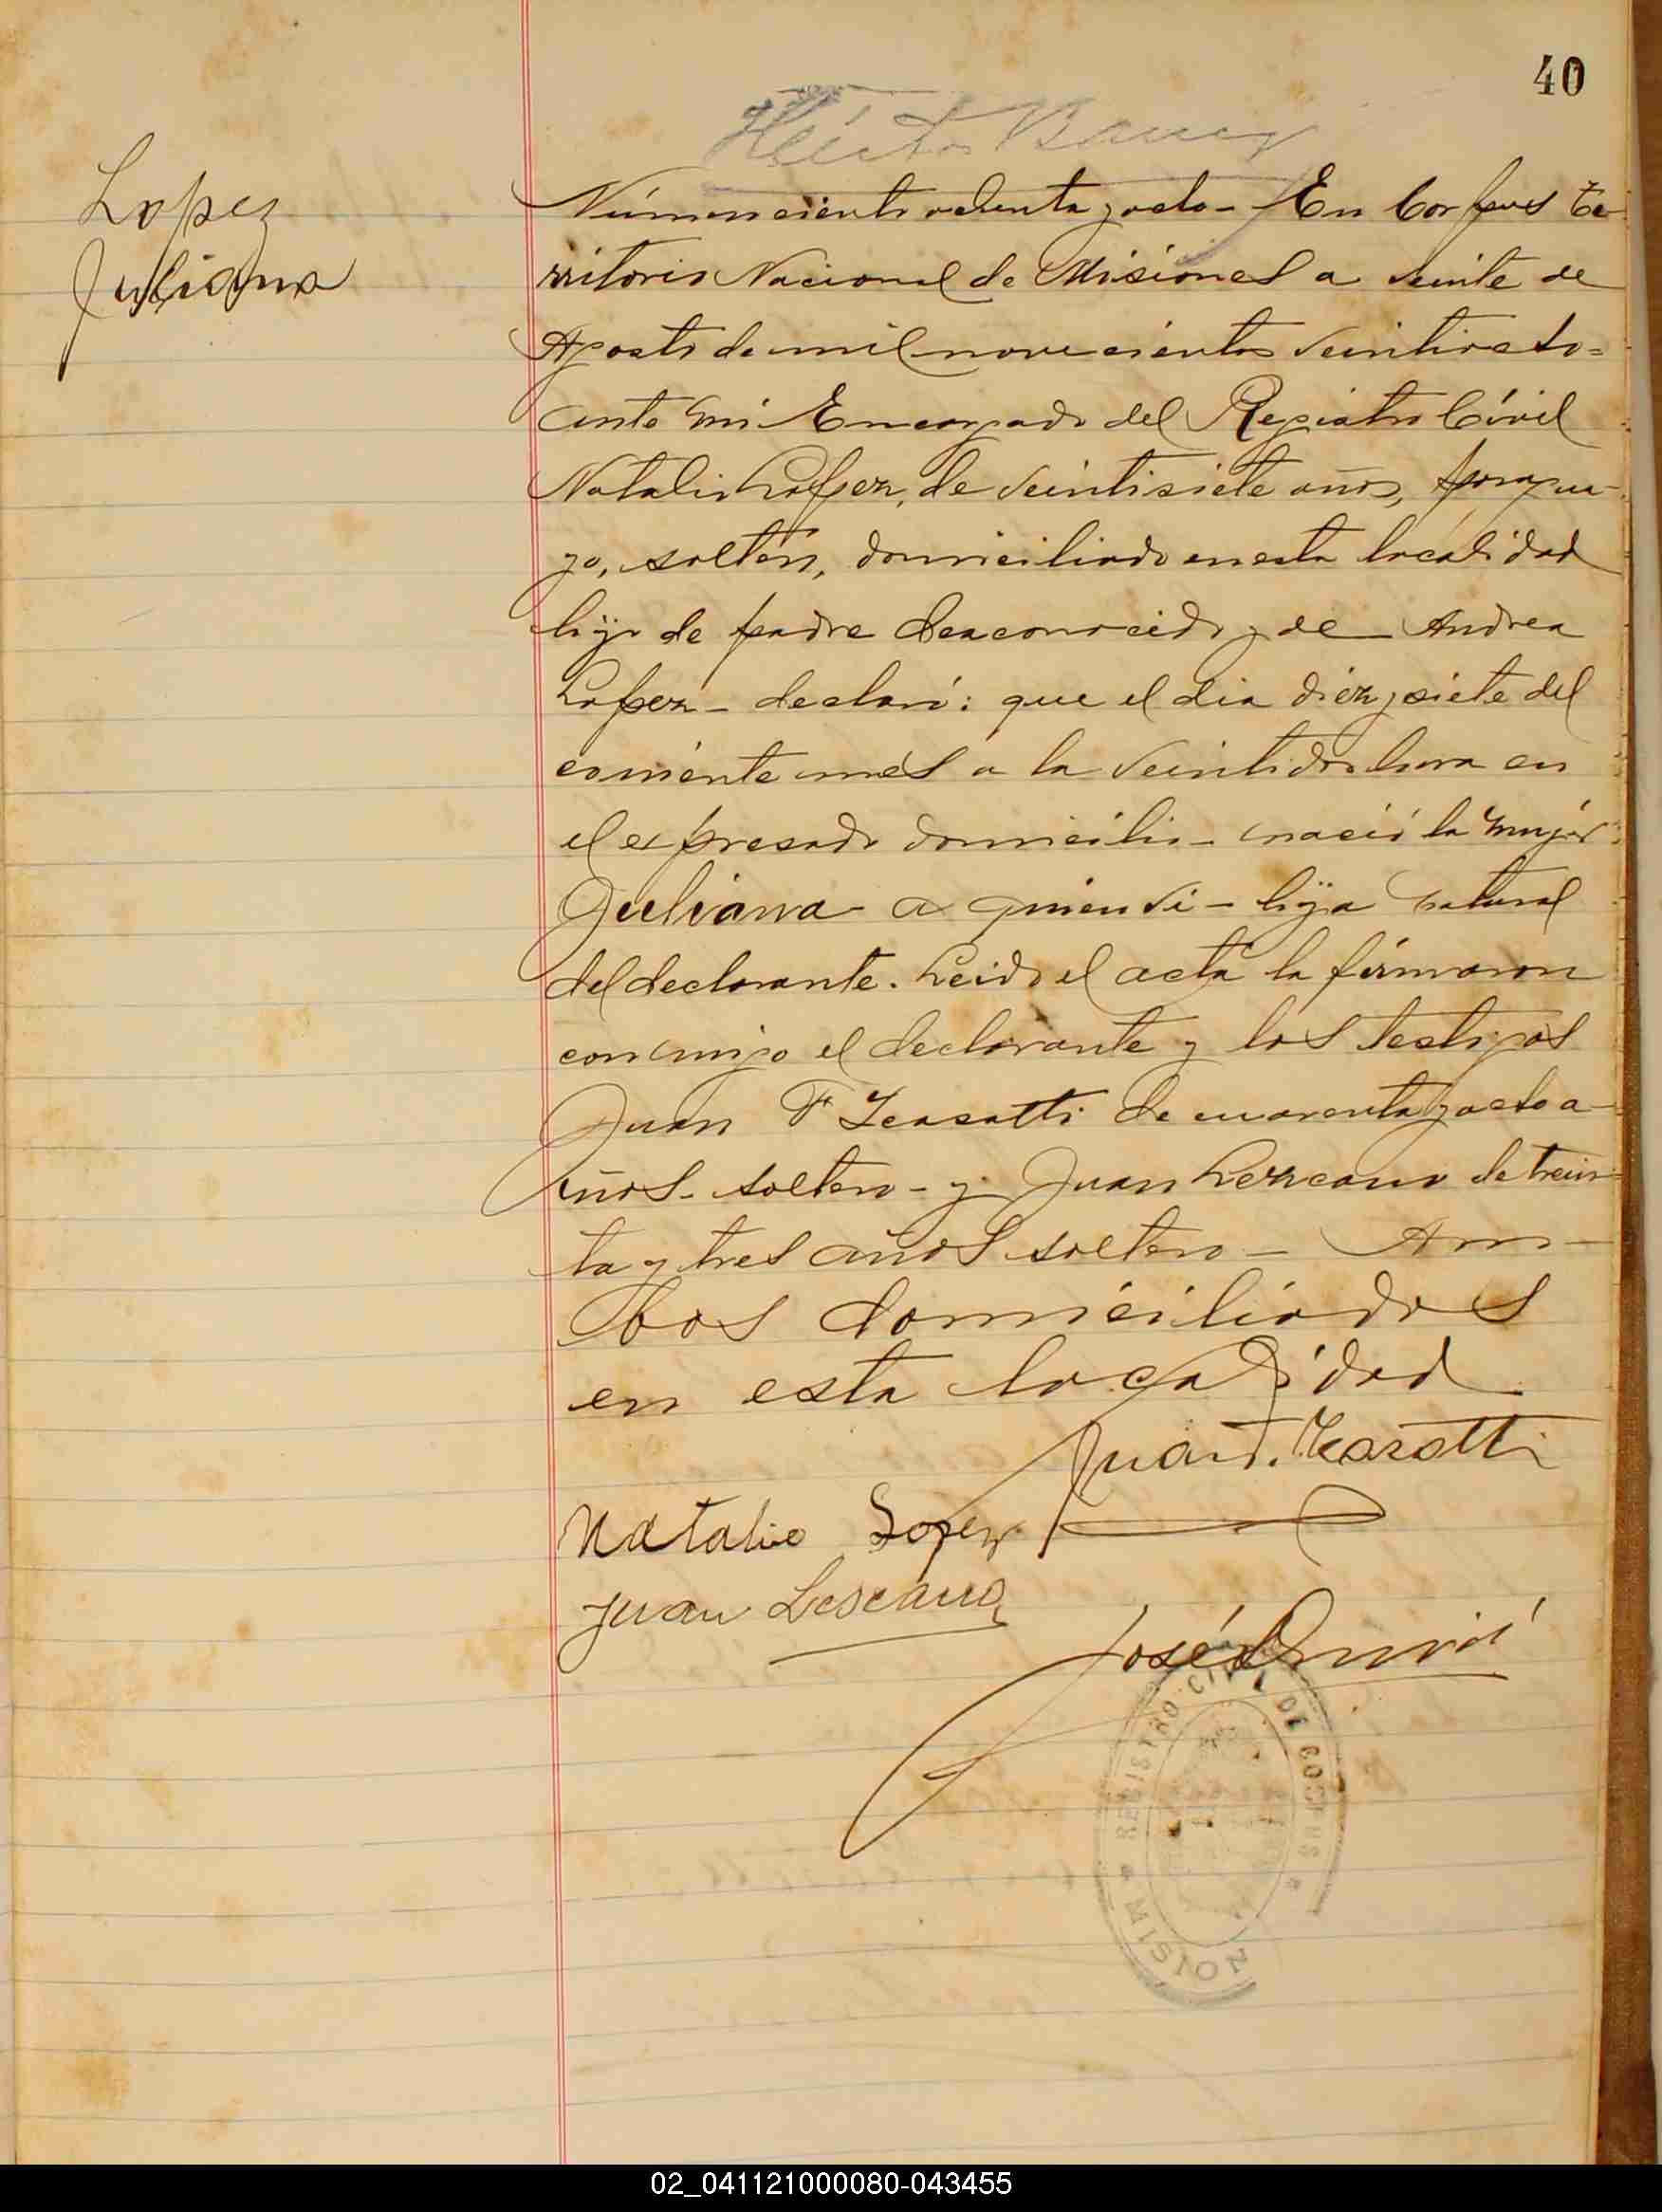 40
Héctor
Lopez
Juliana
Número ciento ochenta y ocho - En Corpus Te-
rritorio Nacional de Misiones a veinte de
Agosto de mil novecientos veintiocho =
ante mi Encargado del Registro Civil
Natalio Lopez, de veintisiete años, paragua-
yo, soltero, domiciliado en esta localidad
hijo de padre desconocido y de Andrea
Lopez - declaró: que el dia diez y siete del
corriente mes a la veintidos hora en
el expresado domicilio - nació la mujer
Juliana - a quien vi - hija natural
del declarante. Leido el acta la firmaron
conmigo el declarante y los testigos
Juan F de cuarenta y ocho a-
años - soltero - y Juan Lezcano de trein-
ta y tres años soltero - Am-
bos domiciliados
en esta localidad
Juan
Natalio Lopez
Juan Lescano
José
REGISTRO CIVIL DE CORPUS
MISION
02_041121000080-043455